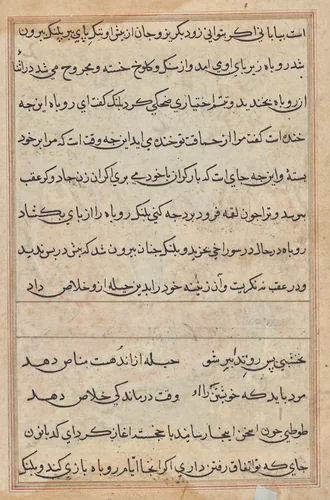 است بیابانی اکر بتوانی زود بکریز و جان از پیش او تنک پای بر پلنک بیرون
شد روباه زیر پای اوی امد و از سنک و کلوخ خسته و مجروح می شد در اثنا
از روباه بخندید و تبسم اختیاری ضحکی کرد پلنک کفت ای روباه این چه
خنده است کفت مرا از حماقت تو خنده می اید این چه وقت است که مرا بر خود
بستهٔ و این چه جای است که بار کران با خود می بری اکر ان زن جادو در عقب
برسد و ترا چون لقمه فرو برد چه کنی پلنک روباه را از پای بکشاد
روباه در حال در سوراخی خزید و پلنک چنان بیرون شد که پیش در پس ندید
و در عقب نه نکریست و آن زن خود را بدین حیله از و خلاص داد
نخشبی پس رو تدابیر شو حیله از اندهت مناص دهد
مرد باید که خویشتن را او وقت درماندکی خلاص دهد
طوطی چون سخن اینجا رسانید با خجسته اغاز کرد ای کدبانون
جای که تو اتفاق رفتن داری اکر انجا ایام روباه بازی کند و پلنک